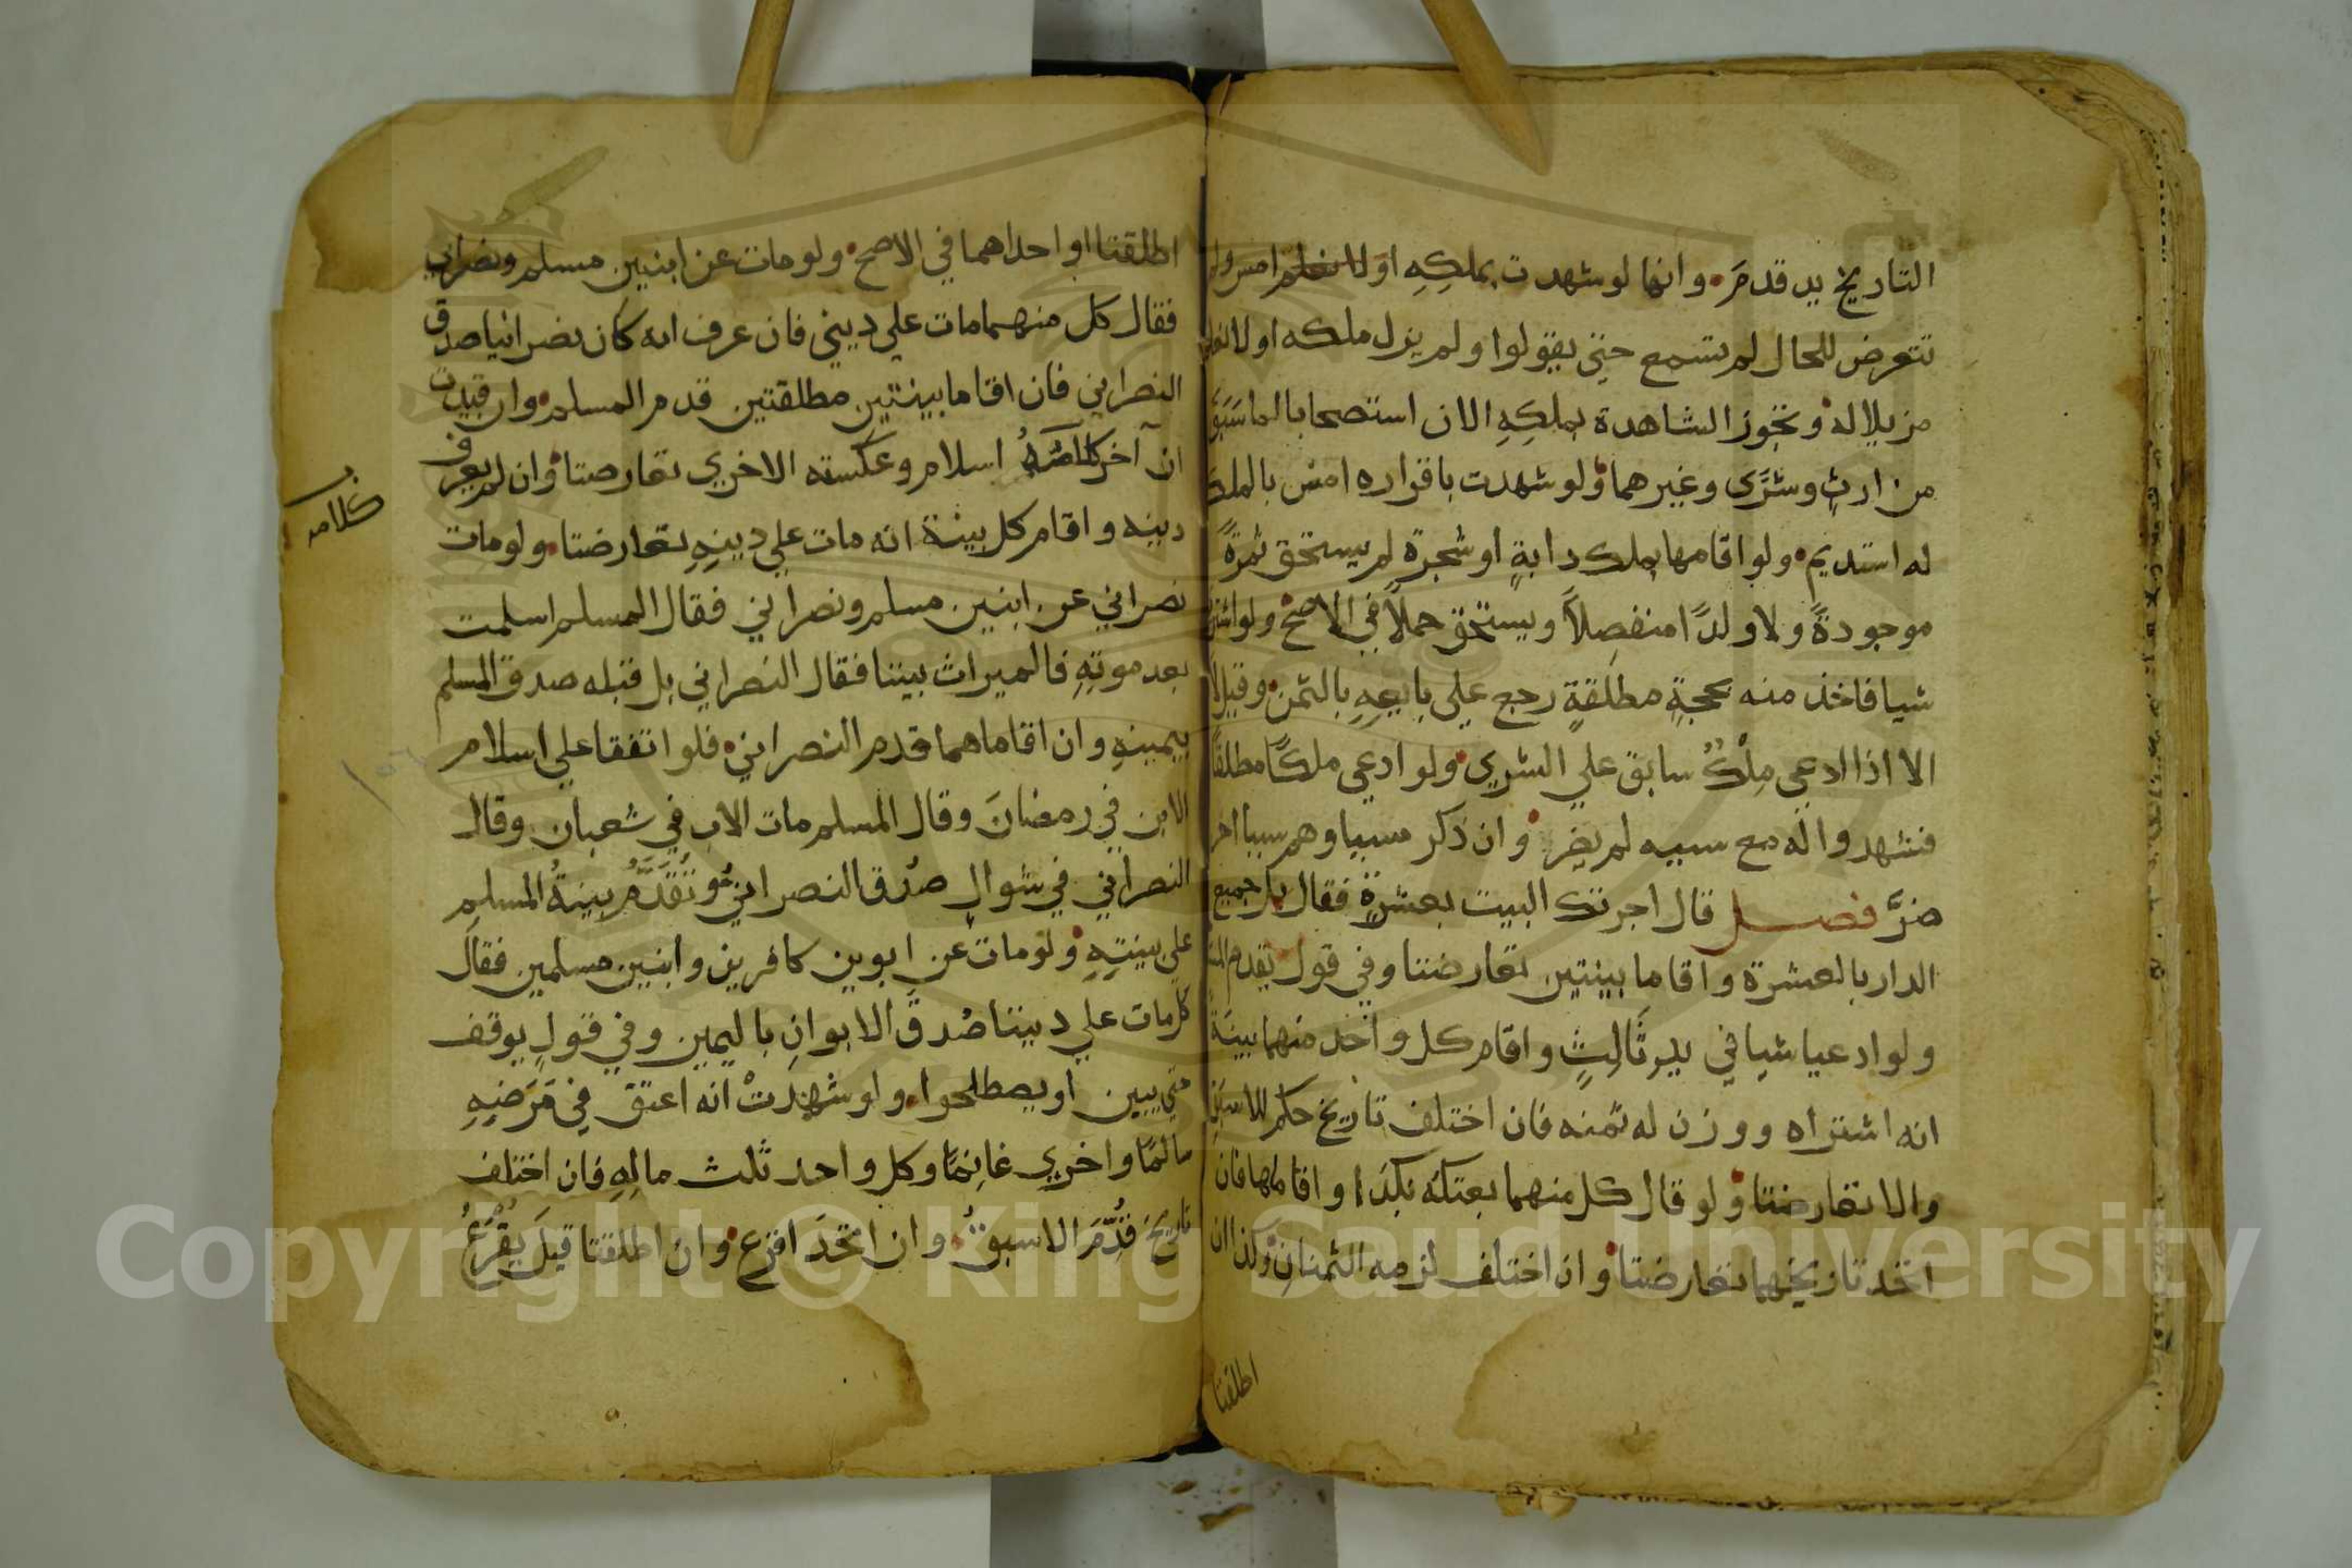 التاريخ يد قدم وانها لو شهدت بملكه اولا امس ولم
تتعرض للحال لم تسمع حتي يقولوا ولم يزل ملكه اولا نعلم
مزيلا له وتجوز الشاهدة بملكه الان استصحابا لما سبق
من ارث وشرى وغيرهما ولو شهدت باقراره امس بالملك
له استديم ولو اقامها بملك دابة او شجرة لم يستحق ثمرة
موجودة ولا ولدا منفصلا ويستحق حملا في الاصح ولو اشترى
شيا فاخذ منه بحجة مطلقة رجع علي بايعه بالثمن وقيل لا
الا اذا ادعي ملك سابق علي الشري ولو ادعي ملكا مطلقا
فشهدوا له مع سببه لم يضر وان ذكر سببا وهم سببا اخر
ضر فصل قال اجرتك البيت بعشرة فقال بل جميع
الدار بالعشرة واقاما بينتين تعارضتا وفي قول تقدم
ولو ادعيا شيا في يد ثالث واقام كل واحد منهما بينة
انه اشتراه ووزن له ثمنه فان اختلف تاريخ حكم للاسبق
والا تعارضتا ولو قال كل منهما بعتكه بكذا واقاماها فان
اتحد تاريخهما تعارضتا وان اختلف لزمه الثمنان وكذا ان
اطلقتا
اطلقتا او احداهما في الاصح ولو مات عن ابنين مسلم ونصراني
فقال كل منهما مات علي ديني فان عرف انه كان نصرانيا صدق
النصراني فان اقاما بينتين مطلقتين قدم المسلم وان قيدت
ان آخر اسلام وعكسته الاخري تعارضتا وان لم يعرف
كلامه
دينه واقام كل بينة انه مات علي دينه تعارضتا ولو مات
نصراني عن ابنين مسلم ونصراني فقال المسلم اسلمت
بعد موته فالميراث بيننا فقال النصراني بل قبله صدق المسلم
بيمينه وان اقاماهما قدم النصراني فلو اتفقا علي اسلام
الابن في رمضان وقال المسلم مات الاب في شعبان وقال
النصراني في شوال صدق النصراني وتقدم بينة المسلم
علي بينته ولو مات عن ابوين كافرين وابنين مسلمين فقال
كل مات علي ديننا صدق الابوان باليمين وفي قول يوقف
حتي يبين او يصطلحوا ولو شهدت انه اعتق في مرضه
سالما واخري غانما وكل واحد ثلث ماله فان اختلف
تاريخ قدم الاسبق وان اتحد اقرع وان اطلقتا قيل يقرع
Copyright © King Saud University